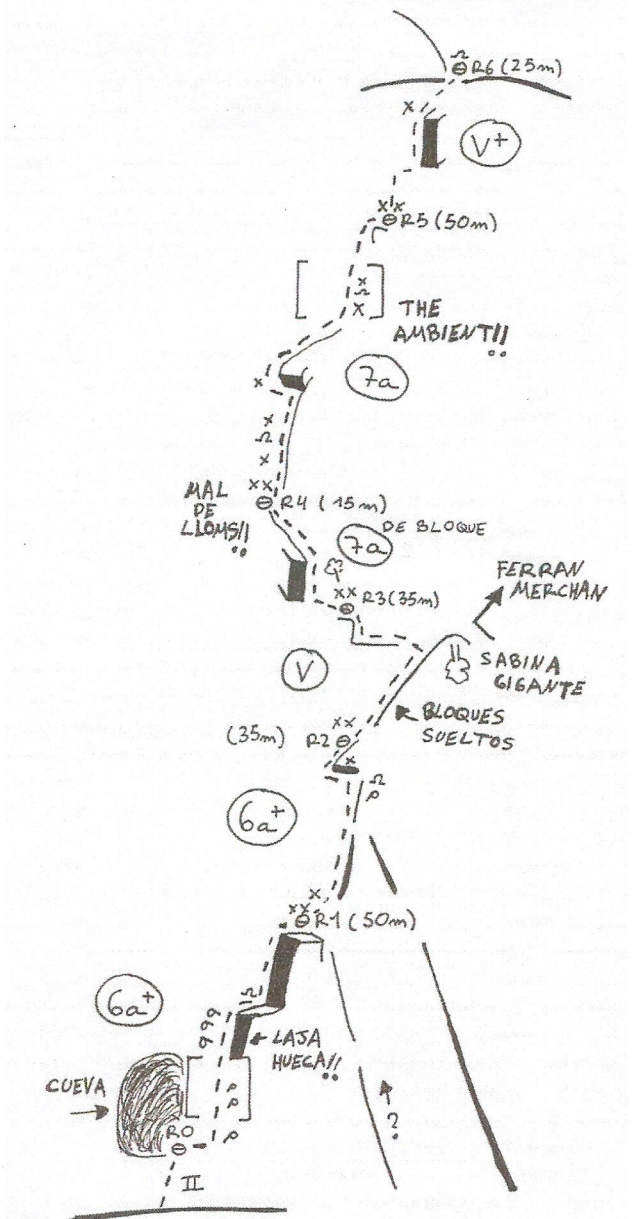 R6 (25m)
V+
R5 (50m)
THE
AMBIENT!!
7a
MAL
DE
LLOMS!!
R4 (15m)
DE BLOQUE
7a
R3 (35m)
FERRAN
MERCHAN
SABINA
GIGANTE
V
BLOQUES
SUELTOS
(35m) R2
6a+
R1 (50m)
6a+
LAJA
HUECA!!
CUEVA
R0
?
II